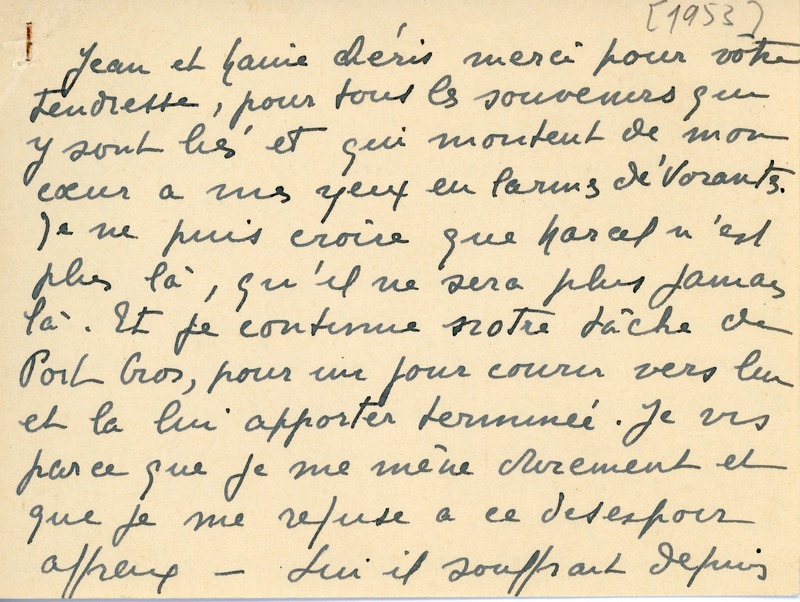 [1953]
Jean et Marie chéris merci pour votre
tendresse, pour tous les souvenirs qui
y sont liés et qui montent de mon
cœur a mes yeux en larmes dévorantes.
Je ne puis croire que Marcel n'est
plus là, qu'il ne sera plus jamais
là. Et je continue notre tâche de
Port Cros, pour un jour courir vers lui
et la lui apporter terminée. Je vis
parce que je me mène durement et
que je me refuse a ce desespoir
affreux — Lui il souffrait depuis